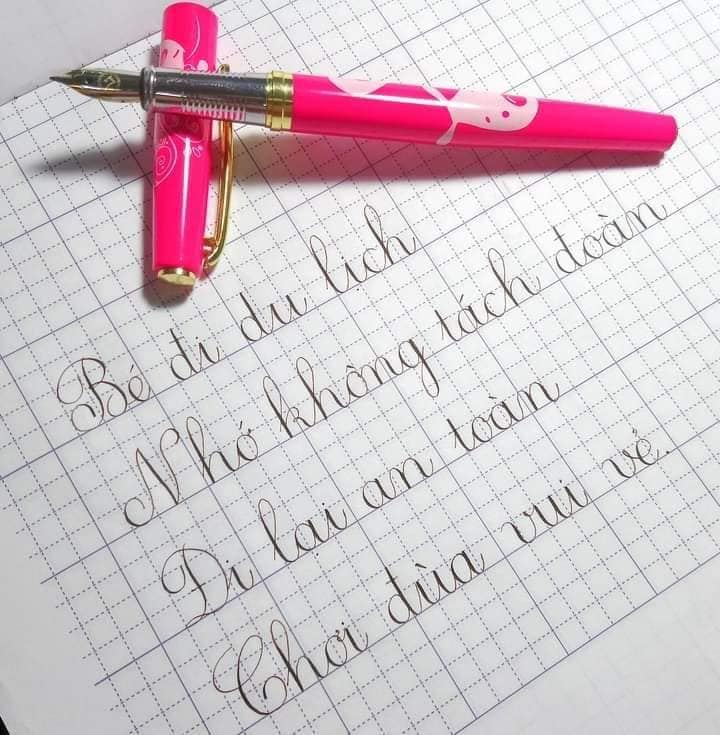 Bé đi du lịch
Nhớ không tách đoàn
Đi lại an toàn
Chơi đùa vui vẻ.